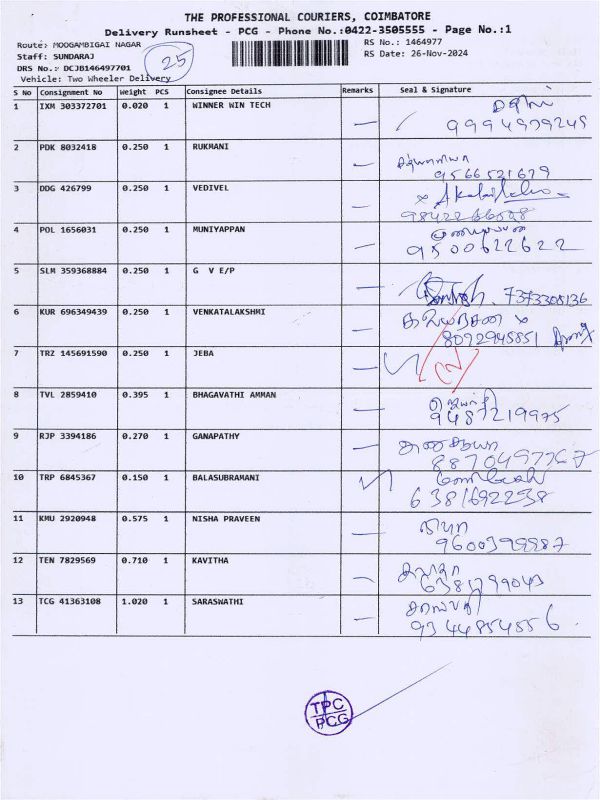 THE PROFESSIONAL COURIERS, COIMBATORE
Delivery Runsheet - PCG - Phone No.:0422-3505555 - Page No.:1
Route: MOOGAMBIGAI NAGAR
RS No.: 1464977
Staff: SUNDARAJ
25
RS Date: 26-Nov-2024
DRS No.: DCJB146497701
Vehicle: Two Wheeler Delivery
S No Consignment No Weight PCS Consignee Details Remarks Seal & Signature
1 IXM 303372701 0.020 1 WINNER WIN TECH
2 PDK 8032418 0.250 1 RUKMANI
9566521679
3 DDG 426799 0.250 1 VEDIVEL
4 POL 1656031 0.250 1 MUNIYAPPAN
9500622622
5 SLM 359368884 0.250 1 G V E/P
7373305136
6 KUR 696349439 0.250 1 VENKATALAKSHMI
8072945851
7 TRZ 145691590 0.250 1 JEBA
8 TVL 2859410 0.395 1 BHAGAVATHI AMMAN
9487219975
9 RJP 3394186 0.270 1 GANAPATHY
10 TRP 6845367 0.150 1 BALASUBRAMANI
6381692238
11 KMU 2920948 0.575 1 NISHA PRAVEEN
12 TEN 7829569 0.710 1 KAVITHA
13 TCG 41363108 1.020 1 SARASWATHI
9344854556
TPC
PCG